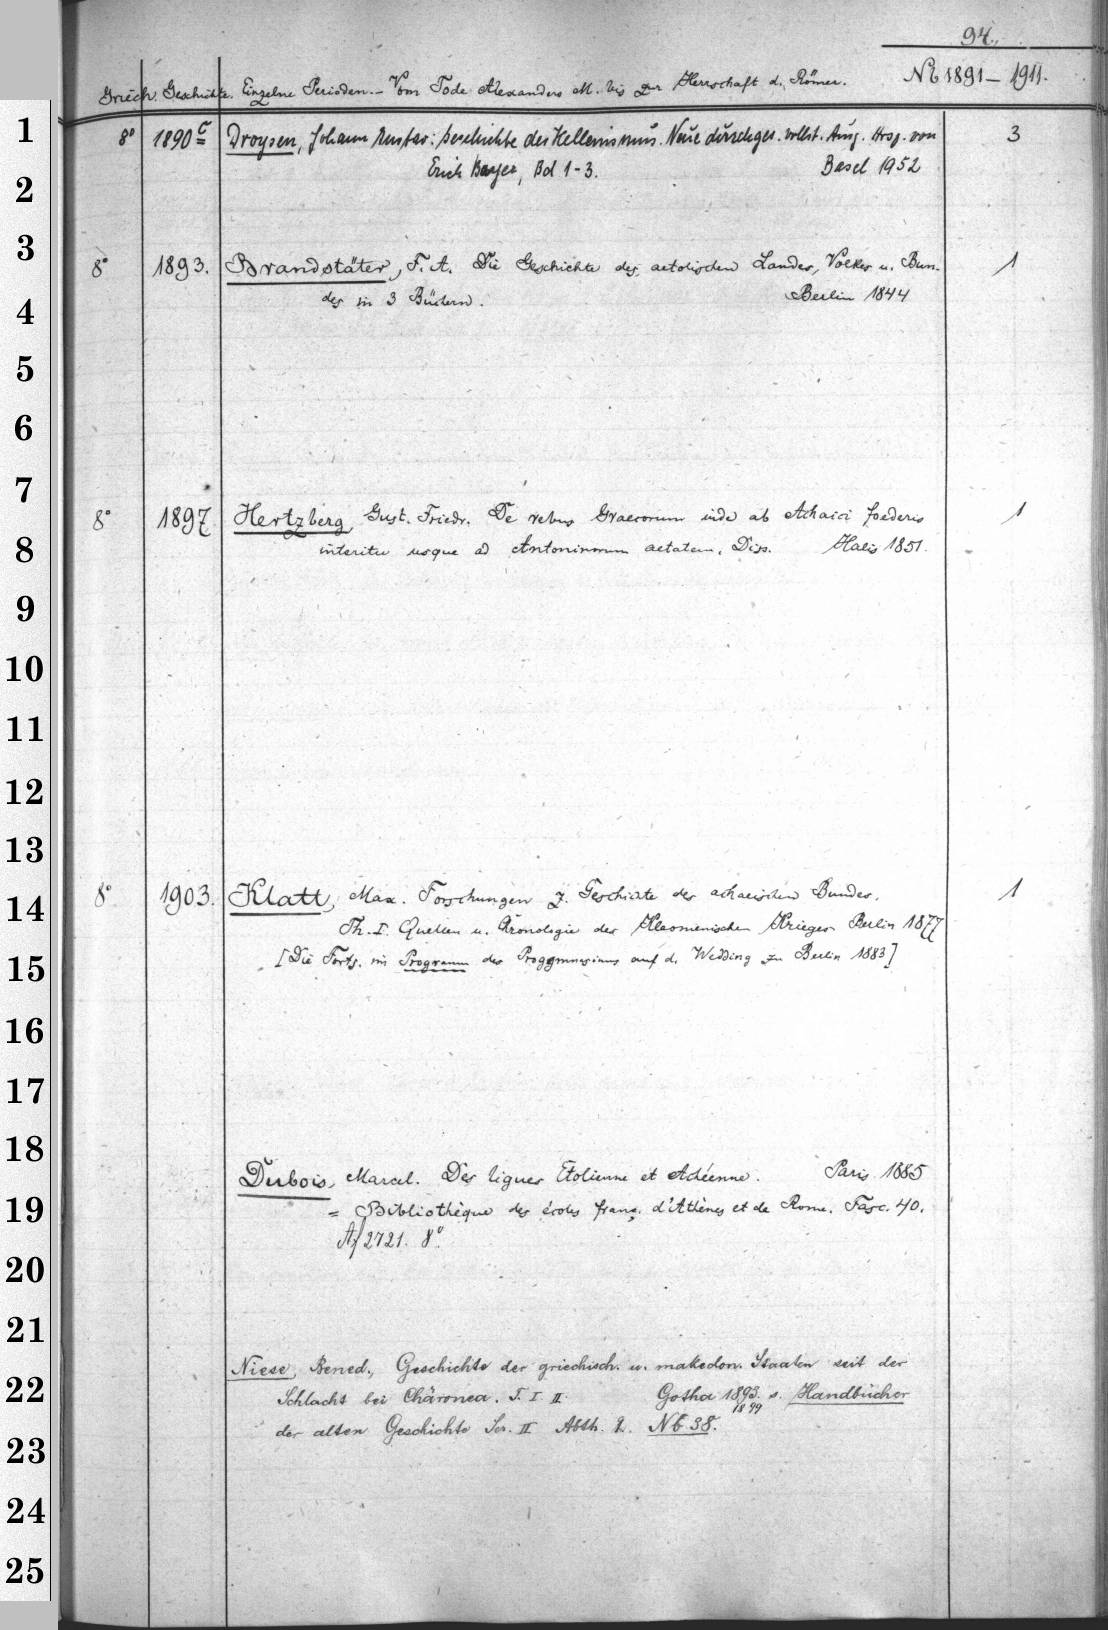 94.
Griech. Geschichte. Einzelne Perioden. – Vom Tode Alexanders M. bis zur Herrschaft d. Römer. No 1891 – 1911.
1
8° 1890 c Droysen, Johann Gustav: Geschichte des Hellenismus. Neue durchges. vollst. Ausg. Hrsg. von 3
Erich Bayer, Bd 1-3. Basel 1952
2
3
8° 1893. Brandstäter, F. A. Die Geschichte des aetolischen Landes, Volkes u. Bun- 1
des in 3 Büchern. Berlin 1844
4
5
6
7
8° 1897 Hertzberg, Gust. Friedr. De rebus Graecorum inde ab Achaici foederis 1
interitu usque ad Antoninorum aetatem. Diss. Halis 1851.
8
9
10
11
12
13
8° 1903. Klatt, Max. Forschungen z. Geschichte des achaeischen Bundes. 1
14
Th. I. Quellen u. Kronologie des Kleomenischen Krieges Berlin 1877
[Die Forts. im Programm des Proggmnasiums auf d. Wedding zu Berlin 1883]
15
16
17
18
Dubois, Marcel. Des ligues Étolienne et Achéenne. Paris 1885
19
= Bibliothèque des écoles franç. d'Athènes et de Rome. Fasc. 40.
Af 2721. 8°
20
21
Niese, Bened., Geschichte der griechisch. u. makedon. Staaten seit der
22
Schlacht bei Chäronea. T. I II. Gotha 1893. s. Handbücher
1899
der alten Geschichte Ser. II Abth. 2. Nb 38.
23
24
25